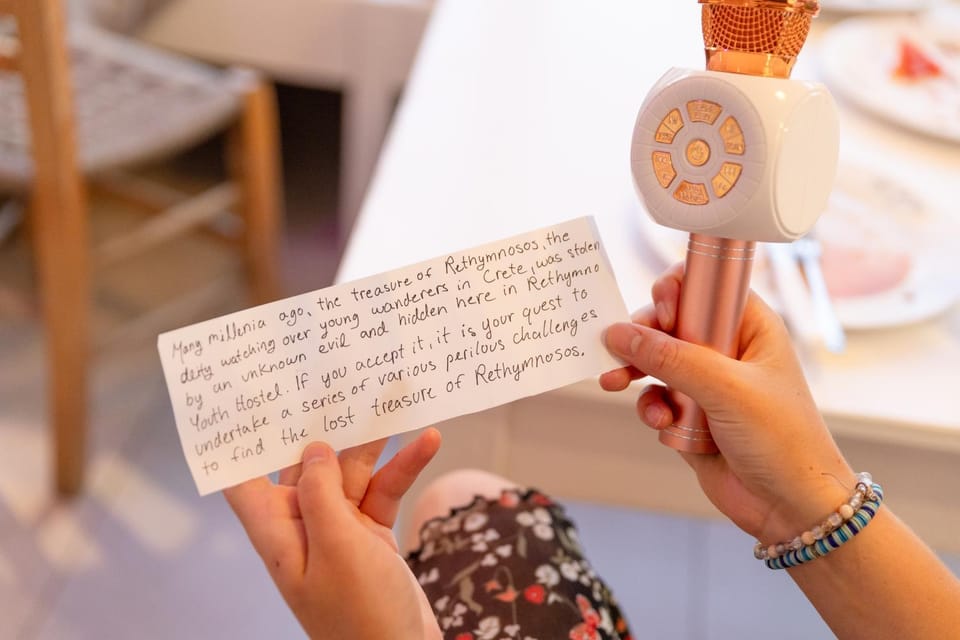 Many millenia ago, the treasure of Rethymnosos, the
deity watching over young wanderers in Crete, was stolen
by an unknown evil and hidden here in Rethymno
Youth Hostel. If you accept it, it is your quest to
undertake a series of various perilous challenges
to find the lost treasure of Rethymnosos.